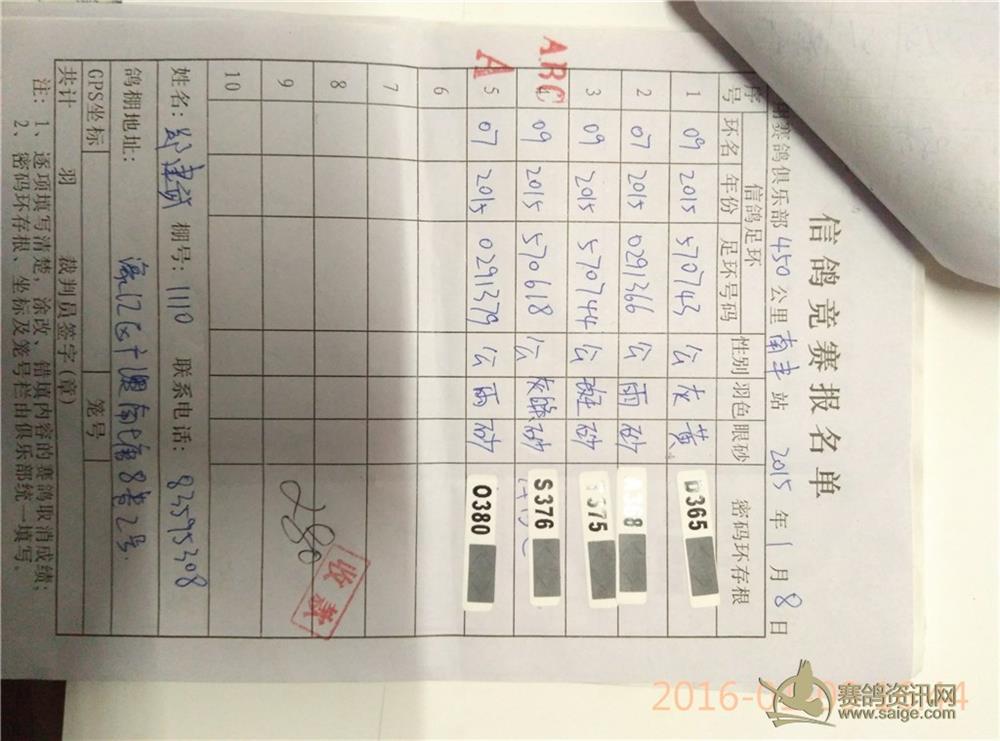 信鸽竞赛报名单
赛鸽俱乐部 450 公里 南丰 站 2015 年 1 月 8 日
序号 信鸽足环 性别 羽色 眼砂 密码环存根
环名 年份 足环号码
1 09 2015 570743 公 灰 黄 365
2 07 2015 0291366 公 雨 砂
3 09 2015 570744 公 斑 砂 375
ABC 09 2015 570618 公 灰 砂 S376
A 5 07 2015 0291379 公 雨 砂 0380
6
7
8
9 280 收讫
10
姓名: 棚号: 1110 联系电话: 83595308
鸽棚地址: 8号2号
GPS坐标 笼号
共计 羽 裁判员签字(章)
注: 1、逐项填写清楚, 涂改、错填内容的赛鸽取消成绩;
2、密码环存根、坐标及笼号栏由俱乐部统一填写。
赛鸽资讯网
www.saige.com